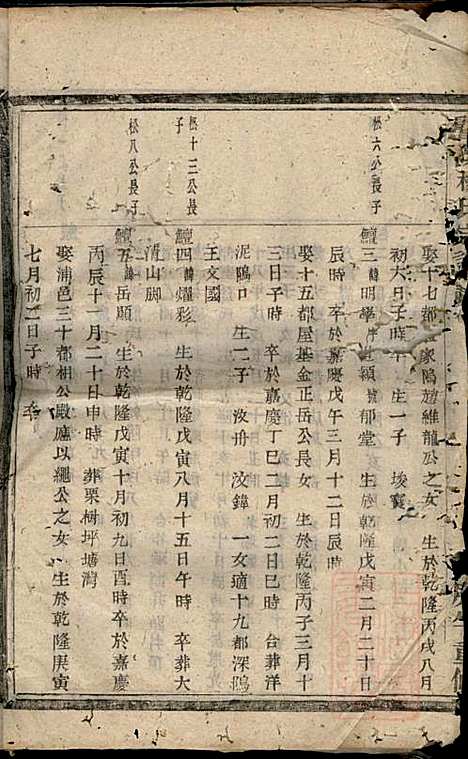 娶十七都 家隝趙維龍公之女 生於乾隆丙戌八月
初六日子時卒 生一子 埈寶
松六公長子
鱣三 諱明學 穎 號郁堂 生於乾隆戊寅二月二十日
辰時 卒於嘉慶戊午三月十二日辰時
娶十五都屋基金正岳公長女 生於乾隆丙子三月十
三日子時 卒於嘉慶丁巳二月初二日巳時 合葬洋
坭隝口 生一子 汝卅 汶鋒 一女適十九都深隝
王文國
松十三公長子
鱣四 諱爚彩 生於乾隆戊寅八月十五日午時 卒葬大
湾山脚
松八公長子
鱣五 諱岳願 生於乾隆戊寅十月初九日酉時卒於嘉慶
丙辰十一月二十日申時 葬栗樹坪塘灣
娶浦邑三十都相公殿應以繩公之女 生於乾隆庚寅
七月初二日子時 卒